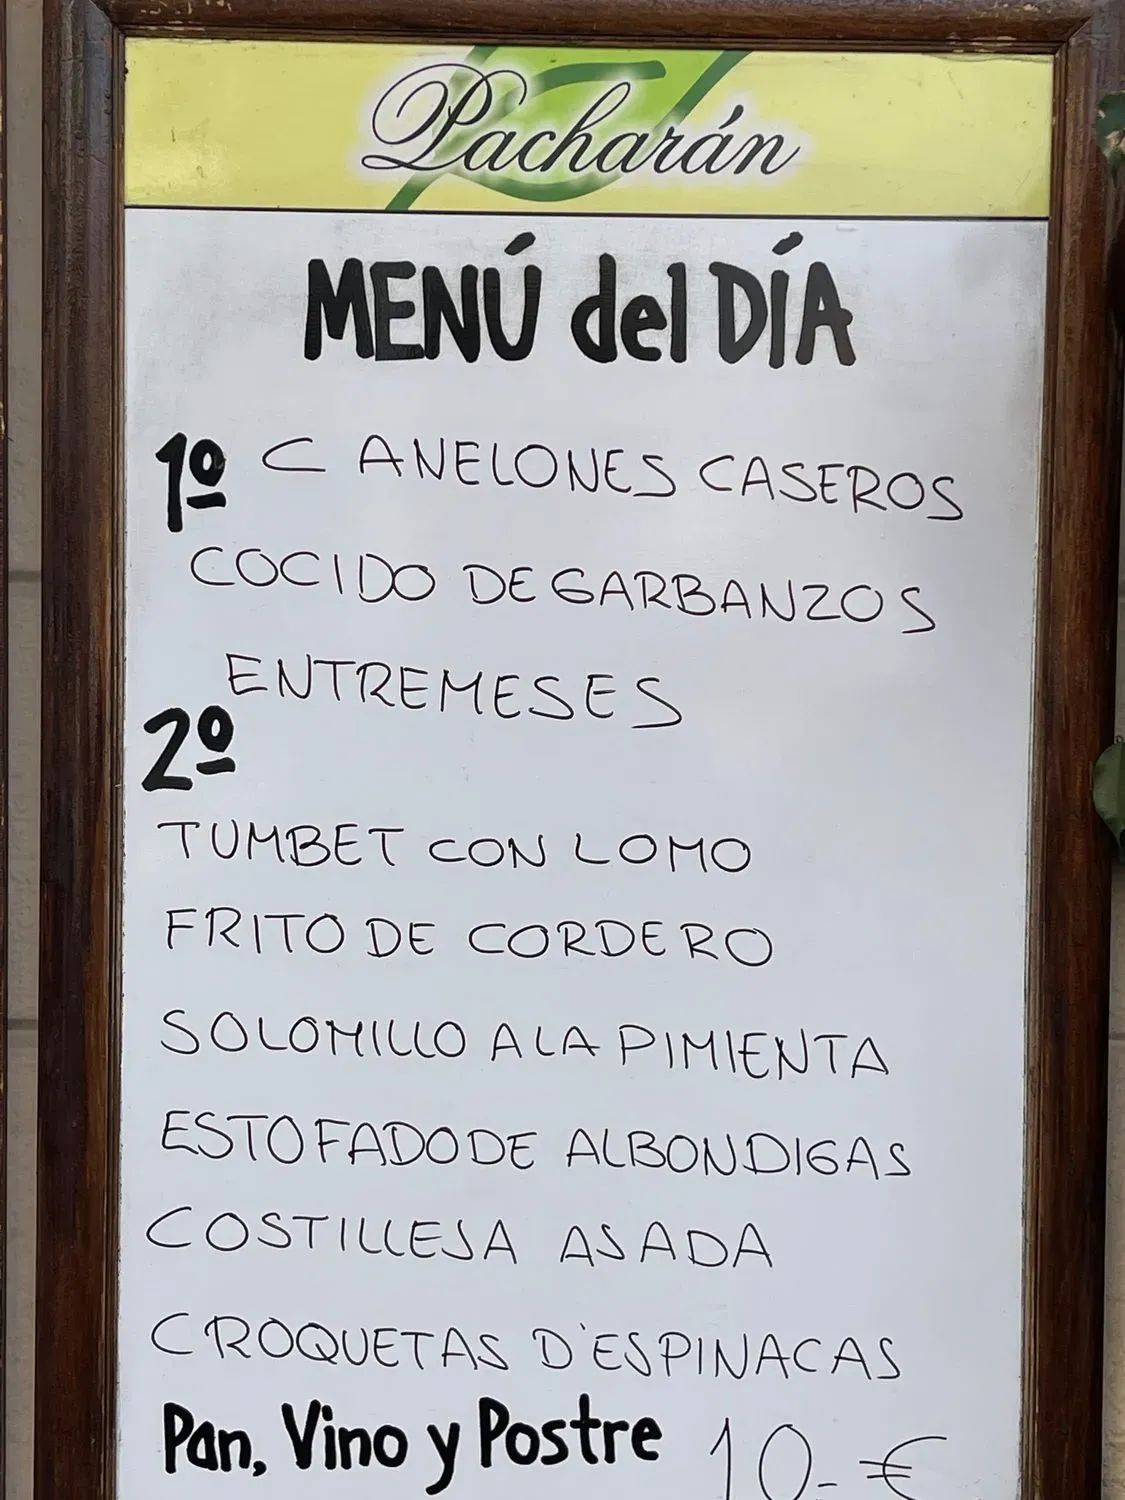 Pacharán
MENÚ del DÍA
1º CANELONES CASEROS
COCIDO DE GARBANZOS
ENTREMESES
2º
TUMBET CON LOMO
FRITO DE CORDERO
SOLOMILLO A LA PIMIENTA
ESTOFADO DE ALBONDIGAS
COSTILLESA ASADA
CROQUETAS D'ESPINACAS
Pan, Vino y Postre 10.-€